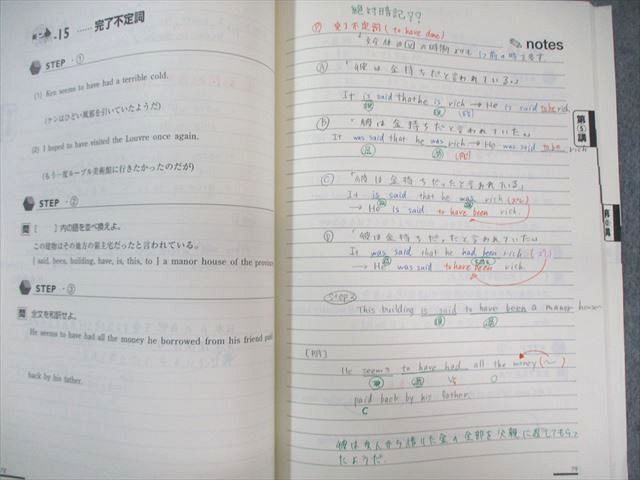 .15 ……完了不定詞
STEP・①
(1) Ken seems to have had a terrible cold.
(ケンはひどい風邪を引いていたようだ)
(2) I hoped to have visited the Louvre once again.
(もう一度ルーブル美術館に行きたかったのだが)
STEP・②
問 [ ]内の語を並べ換えよ。
この建物はその地方の領主宅だったと言われている。
[ said, been, building, have, is, this, to ] a manor house of the province
STEP・③
問 全文を和訳せよ。
He seems to have had all the money he borrowed from his friend paid
back by his father.
78
絶対暗記??
notes
完了不定詞 (to have done)
第⑤講
「彼は金持ちだと言われている。」
It is said that he is rich → He is said to be rich
「彼は金持ちだと言われていた。」
It was said that he was rich → He was said to be rich
「彼は金持ちだったと言われている」
It is said that he was rich
→ He is said to have been rich.
「彼は金持ちだったと言われていた。」
It was said that he had been rich.
→ He was said to have been rich
Step2
This building is said to have been a manor house
He seems to have had all the money (〜)
V O
paid back by his father.
C
彼は友人から借りた金の全部を父親に返してもらっ
たようだ。
79